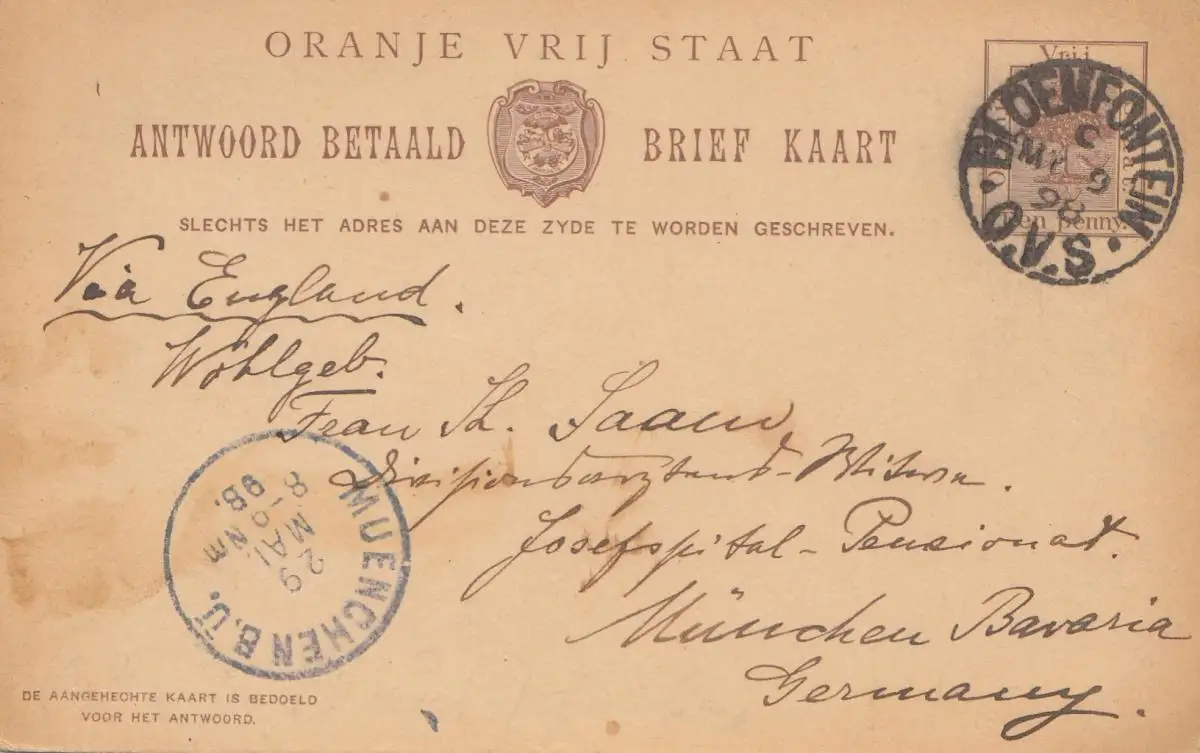 ORANJE VRIJ STAAT
ANTWOORD BETAALD BRIEF KAART
SLECHTS HET ADRES AAN DEZE ZYDE TE WORDEN GESCHREVEN.
Vrij
Een Penny.
BLOEMFONTEIN
C
MY 9
98
O.V.S.
Via England.
Wohlgeb.
Frau Th.
Divisionsarztens-Witwe.
Josefspital-Pensionat.
München Bavaria
Germany.
MUENCHEN B.Ü.
29
MAI
8-9 Nm
98.
DE AANGEHECHTE KAART IS BEDOELD
VOOR HET ANTWOORD.